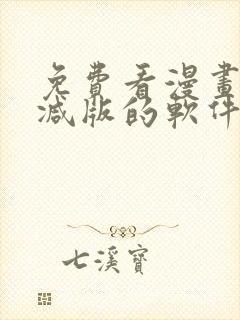 免費看漫畫
減版的軟件
七溪寶